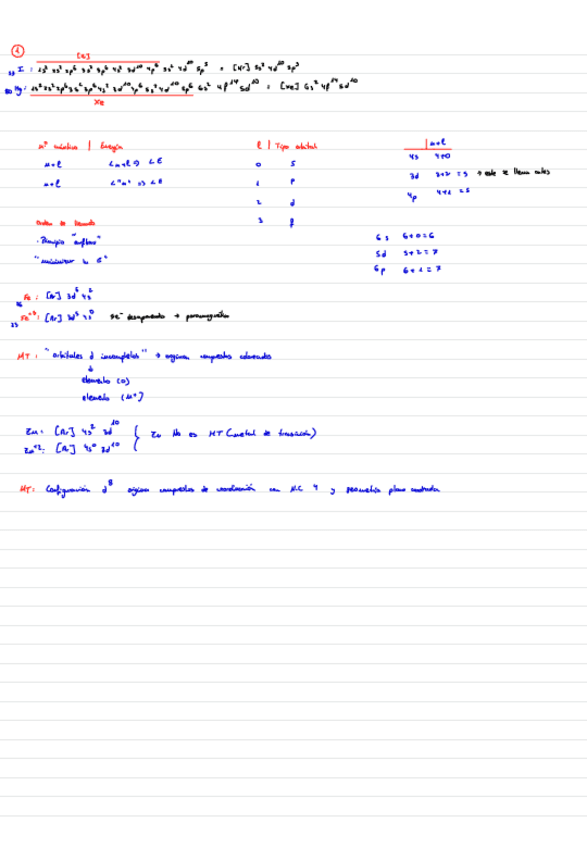 1
[Kr]
53 I : 1s² 2s² 2p⁶ 3s² 3p⁶ 4s² 3d¹⁰ 4p⁶ 5s² 4d¹⁰ 5p⁵ = [Kr] 5s² 4d¹⁰ 5p⁵
80 Hg : 1s² 2s² 2p⁶ 3s² 3p⁶ 4s² 3d¹⁰ 4p⁶ 5s² 4d¹⁰ 5p⁶ 6s² 4f¹⁴ 5d¹⁰ = [Xe] 6s² 4f¹⁴ 5d¹⁰
Xe
nº cuántico | Energía
n+l < n+l ⇒ < E
n+l < "n" ⇒ < E
l | Tipo orbital
0 s
1 p
2 d
3 f
| n+l
4s 4+0
3d 3+2 = 5 → este se llena antes
4p 4+1 = 5
Orden de llenado
· Principio "aufbau"
"minimizar la E"
6s 6+0=6
5d 5+2=7
6p 6+1=7
26 Fe : [Ar] 3d⁶ 4s²
23 Fe⁺³ : [Ar] 3d⁵ 4s⁰ 5e⁻ desapareados → paramagnético
MT : "orbitales d incompletos" → originan compuestos coloreados
elemento (0)
elemento (M⁺)
Zn : [Ar] 4s² 3d¹⁰
Zn⁺² : [Ar] 4s⁰ 3d¹⁰ } Zn No es MT (metal de transición)
MT : Configuración d⁸ origina compuestos de coordinación con N.C 4 y geometría plano cuadrada